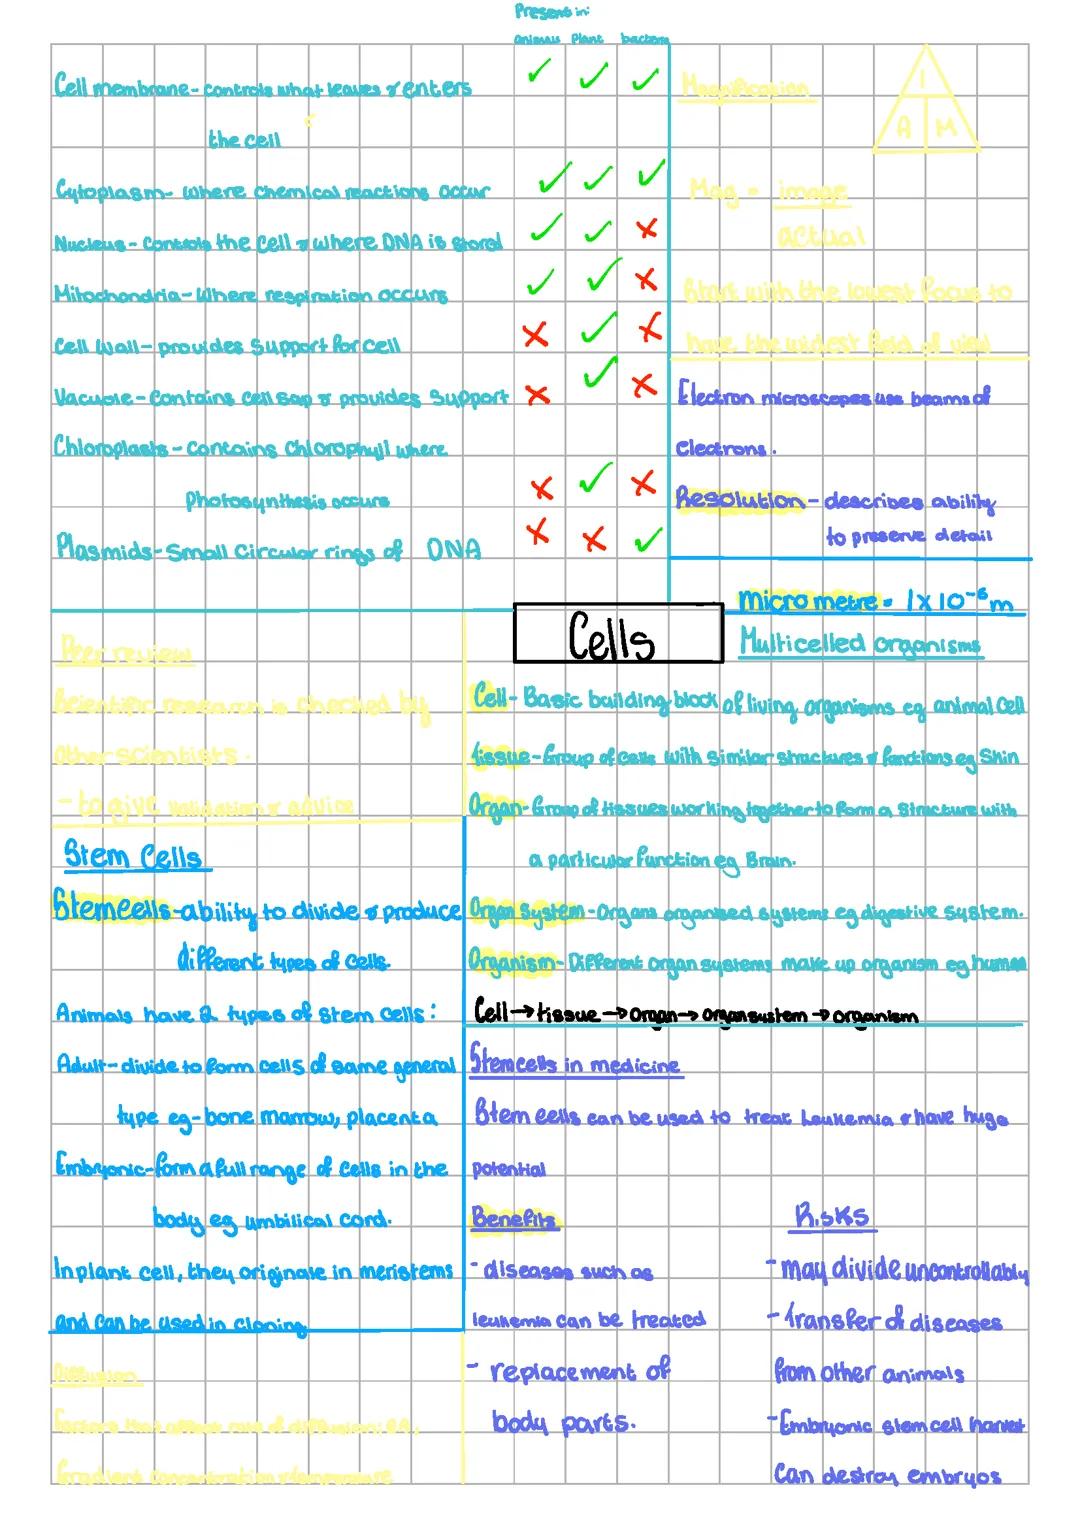 Present in:
animals plant bacteria
Cell membrane- controls what leaves & enters
the cell
Cytoplasm- where chemical reactions occur
Nucleus - Controls the cell & where DNA is stored
Mitochondria - Where respiration occurs
Cell Wall - provides support for cell
Vacuole - Contains cell sap & provides support
Chloroplasts - contains chlorophyll where
photosynthesis occurs
Plasmids - small circular rings of DNA
Magnification
I
A M
Mag = image
actual
Start with the lowest focus to
have the widest field of view
Electron microscopes use beams of
electrons.
Resolution - describes ability
to preserve detail
micrometre = 1x10-6 m
Cells
Multicelled organisms
Peer review
Scientific research is checked by
other scientists.
- to give validation & advice
Cell - Basic building block of living organisms eg animal cell
tissue - Group of cells with similar structures & functions eg skin
Organ - Group of tissues working together to form a structure with
a particular function eg Brain.
Organ System - Organs organised systems eg digestive system.
Organism - Different organ systems make up organism eg human
Cell → tissue → organ → organ system → organism
Stem Cells
Stem cells - ability to divide & produce
different types of cells.
Animals have 2 types of stem cells:
Adult - divide to form cells of same general
type eg - bone marrow, placenta
Embryonic - form a full range of cells in the
body eg umbilical cord.
In plant cell, they originate in meristems
and can be used in cloning
Stem cells in medicine
Stem cells can be used to treat leukemia & have huge
potential
Benefits
- diseases such as
leukemia can be treated
- replacement of
body parts.
Risks
- may divide uncontrollably
- transfer of diseases
from other animals
- Embryonic stem cell harvest
can destroy embryos
Diffusion
Factors that affect rate of diffusion:
Gradient concentration & temperature